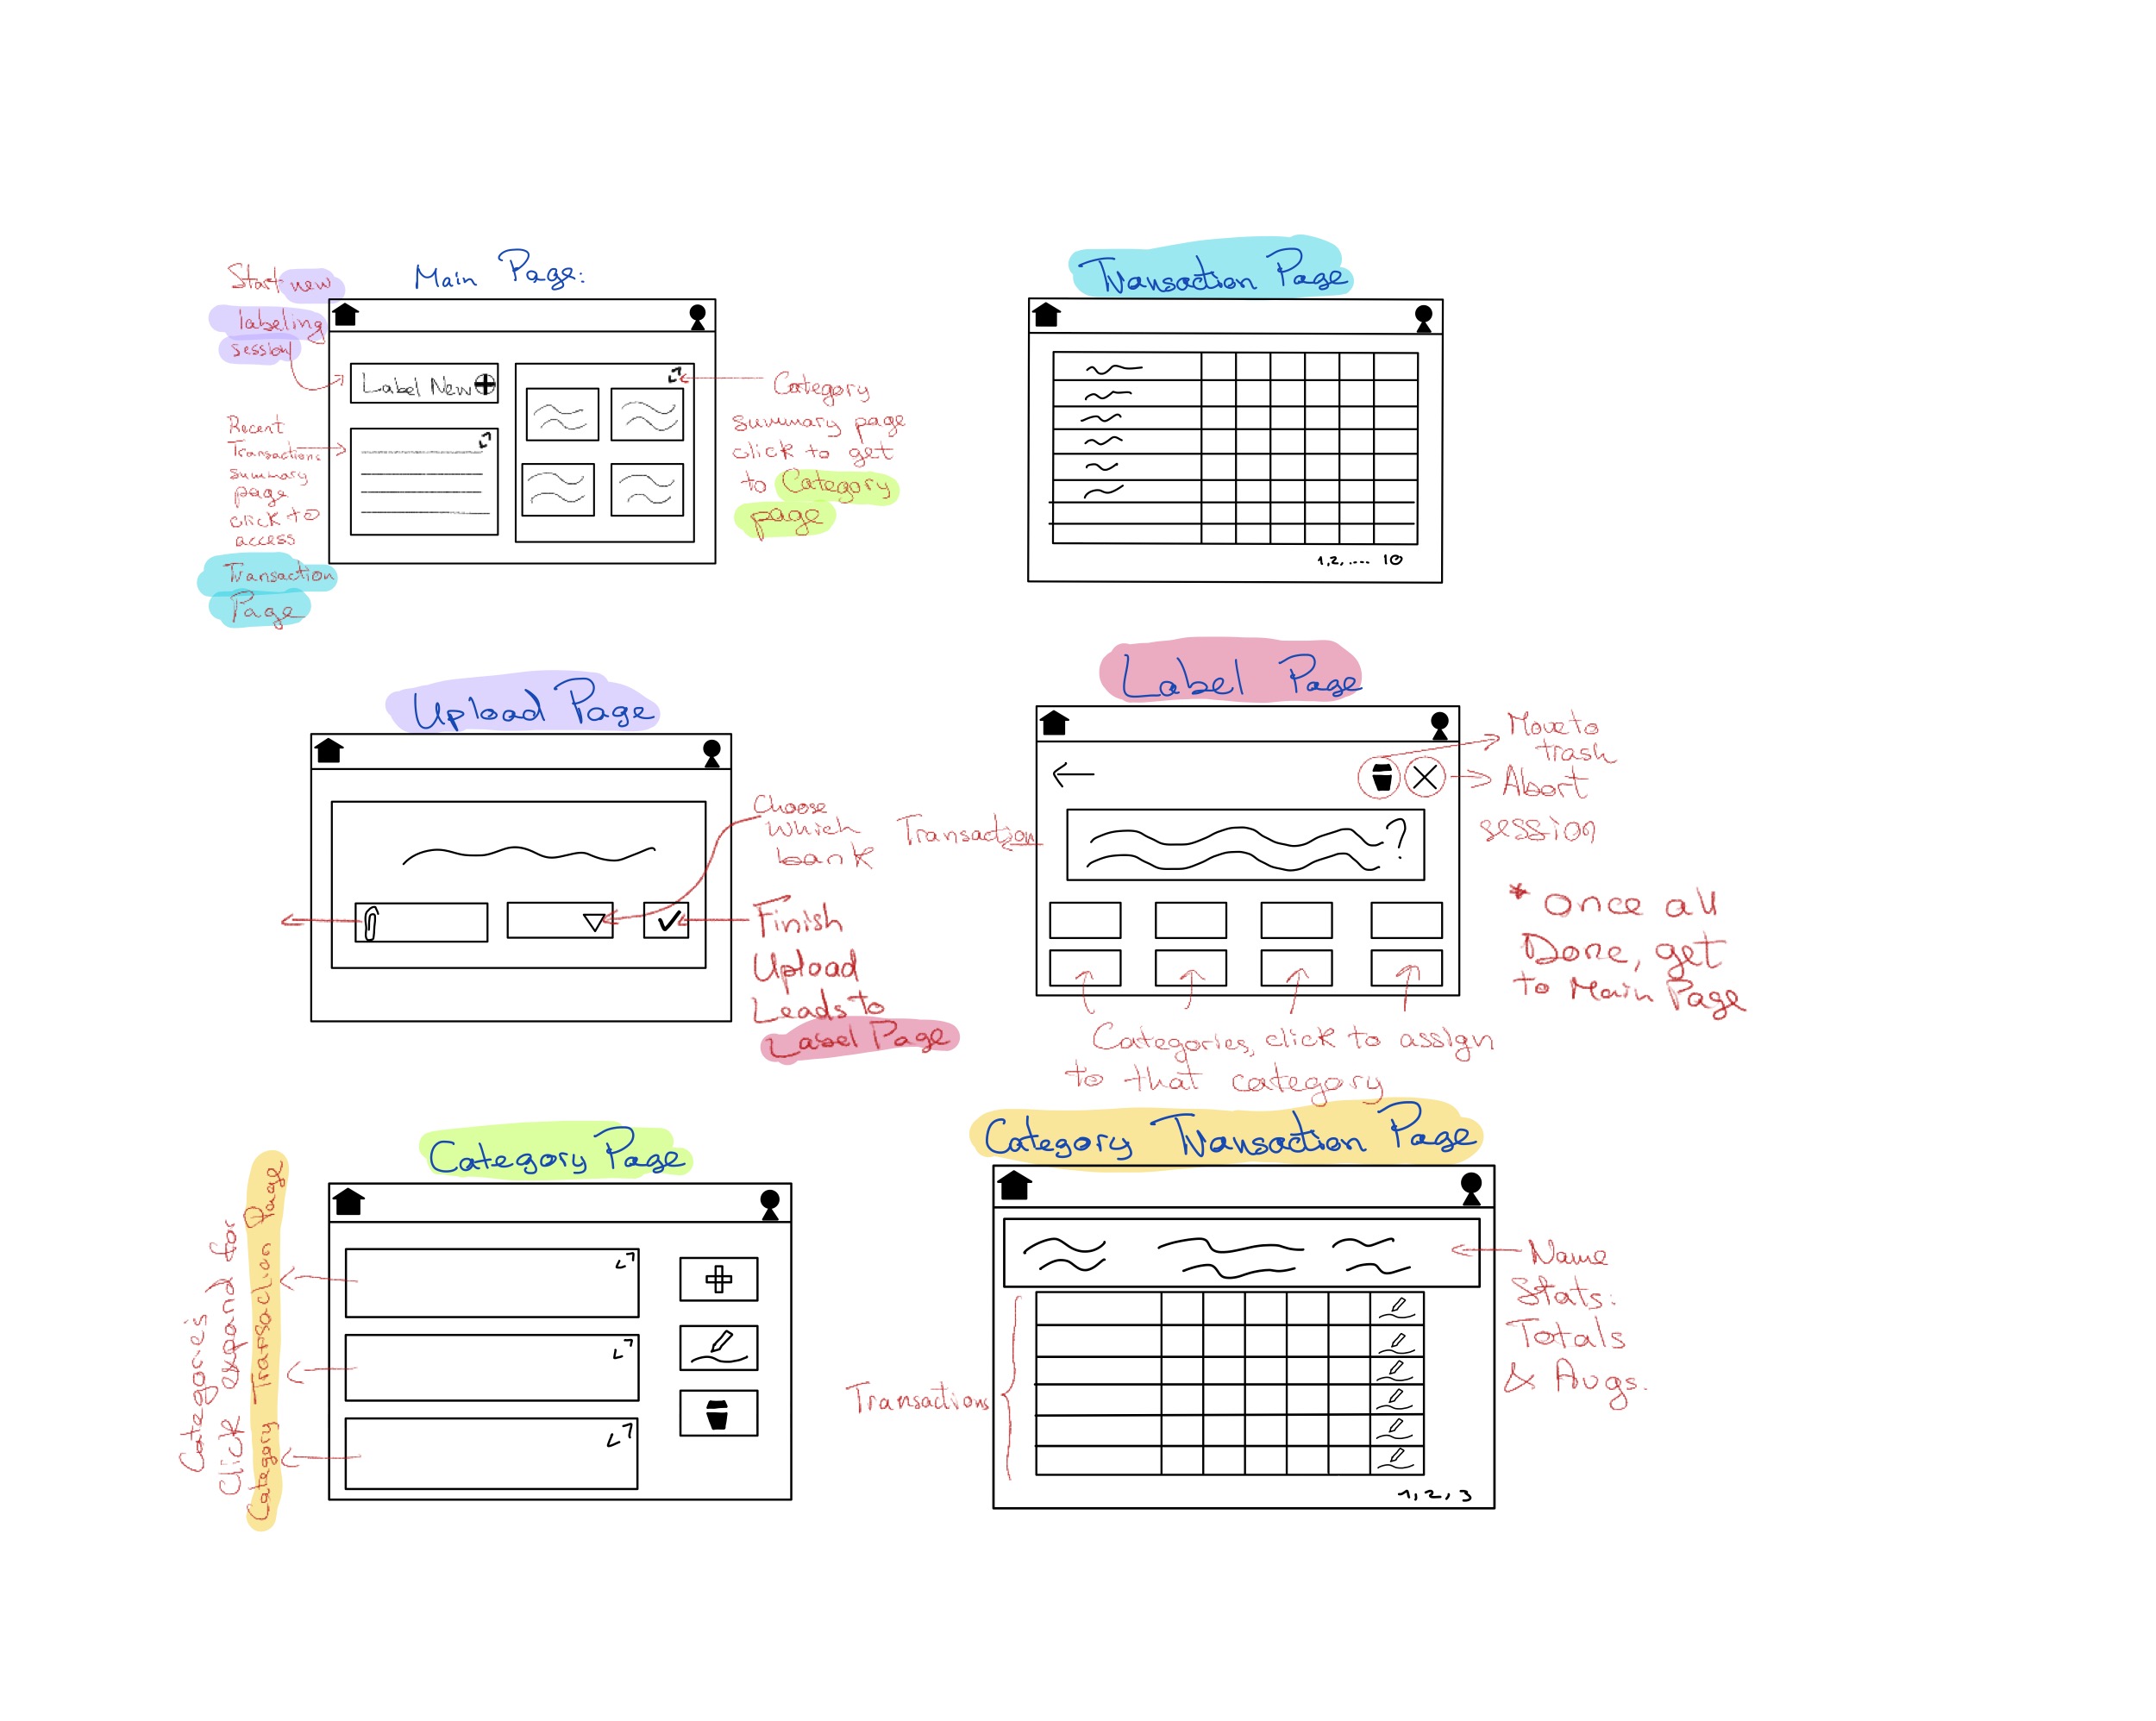 Main Page:
Start new
labeling
session
Label New
Recent
Transactions
summary
page
click to
access
Transaction
Page
Category
summary page
click to get
to Category
page
Transaction Page
1,2,.... 10
Upload Page
Choose
which
bank
Finish
Upload
Leads to
Label Page
Label Page
Move to
trash
Abort
session
Transaction
?
* Once all
Done, get
to Main Page
Categories, click to assign
to that category
Category Page
Categories
Click expand for
Category Transaction Page
Category Transaction Page
Name
Stats:
Totals
& Avgs.
Transactions
1, 2, 3